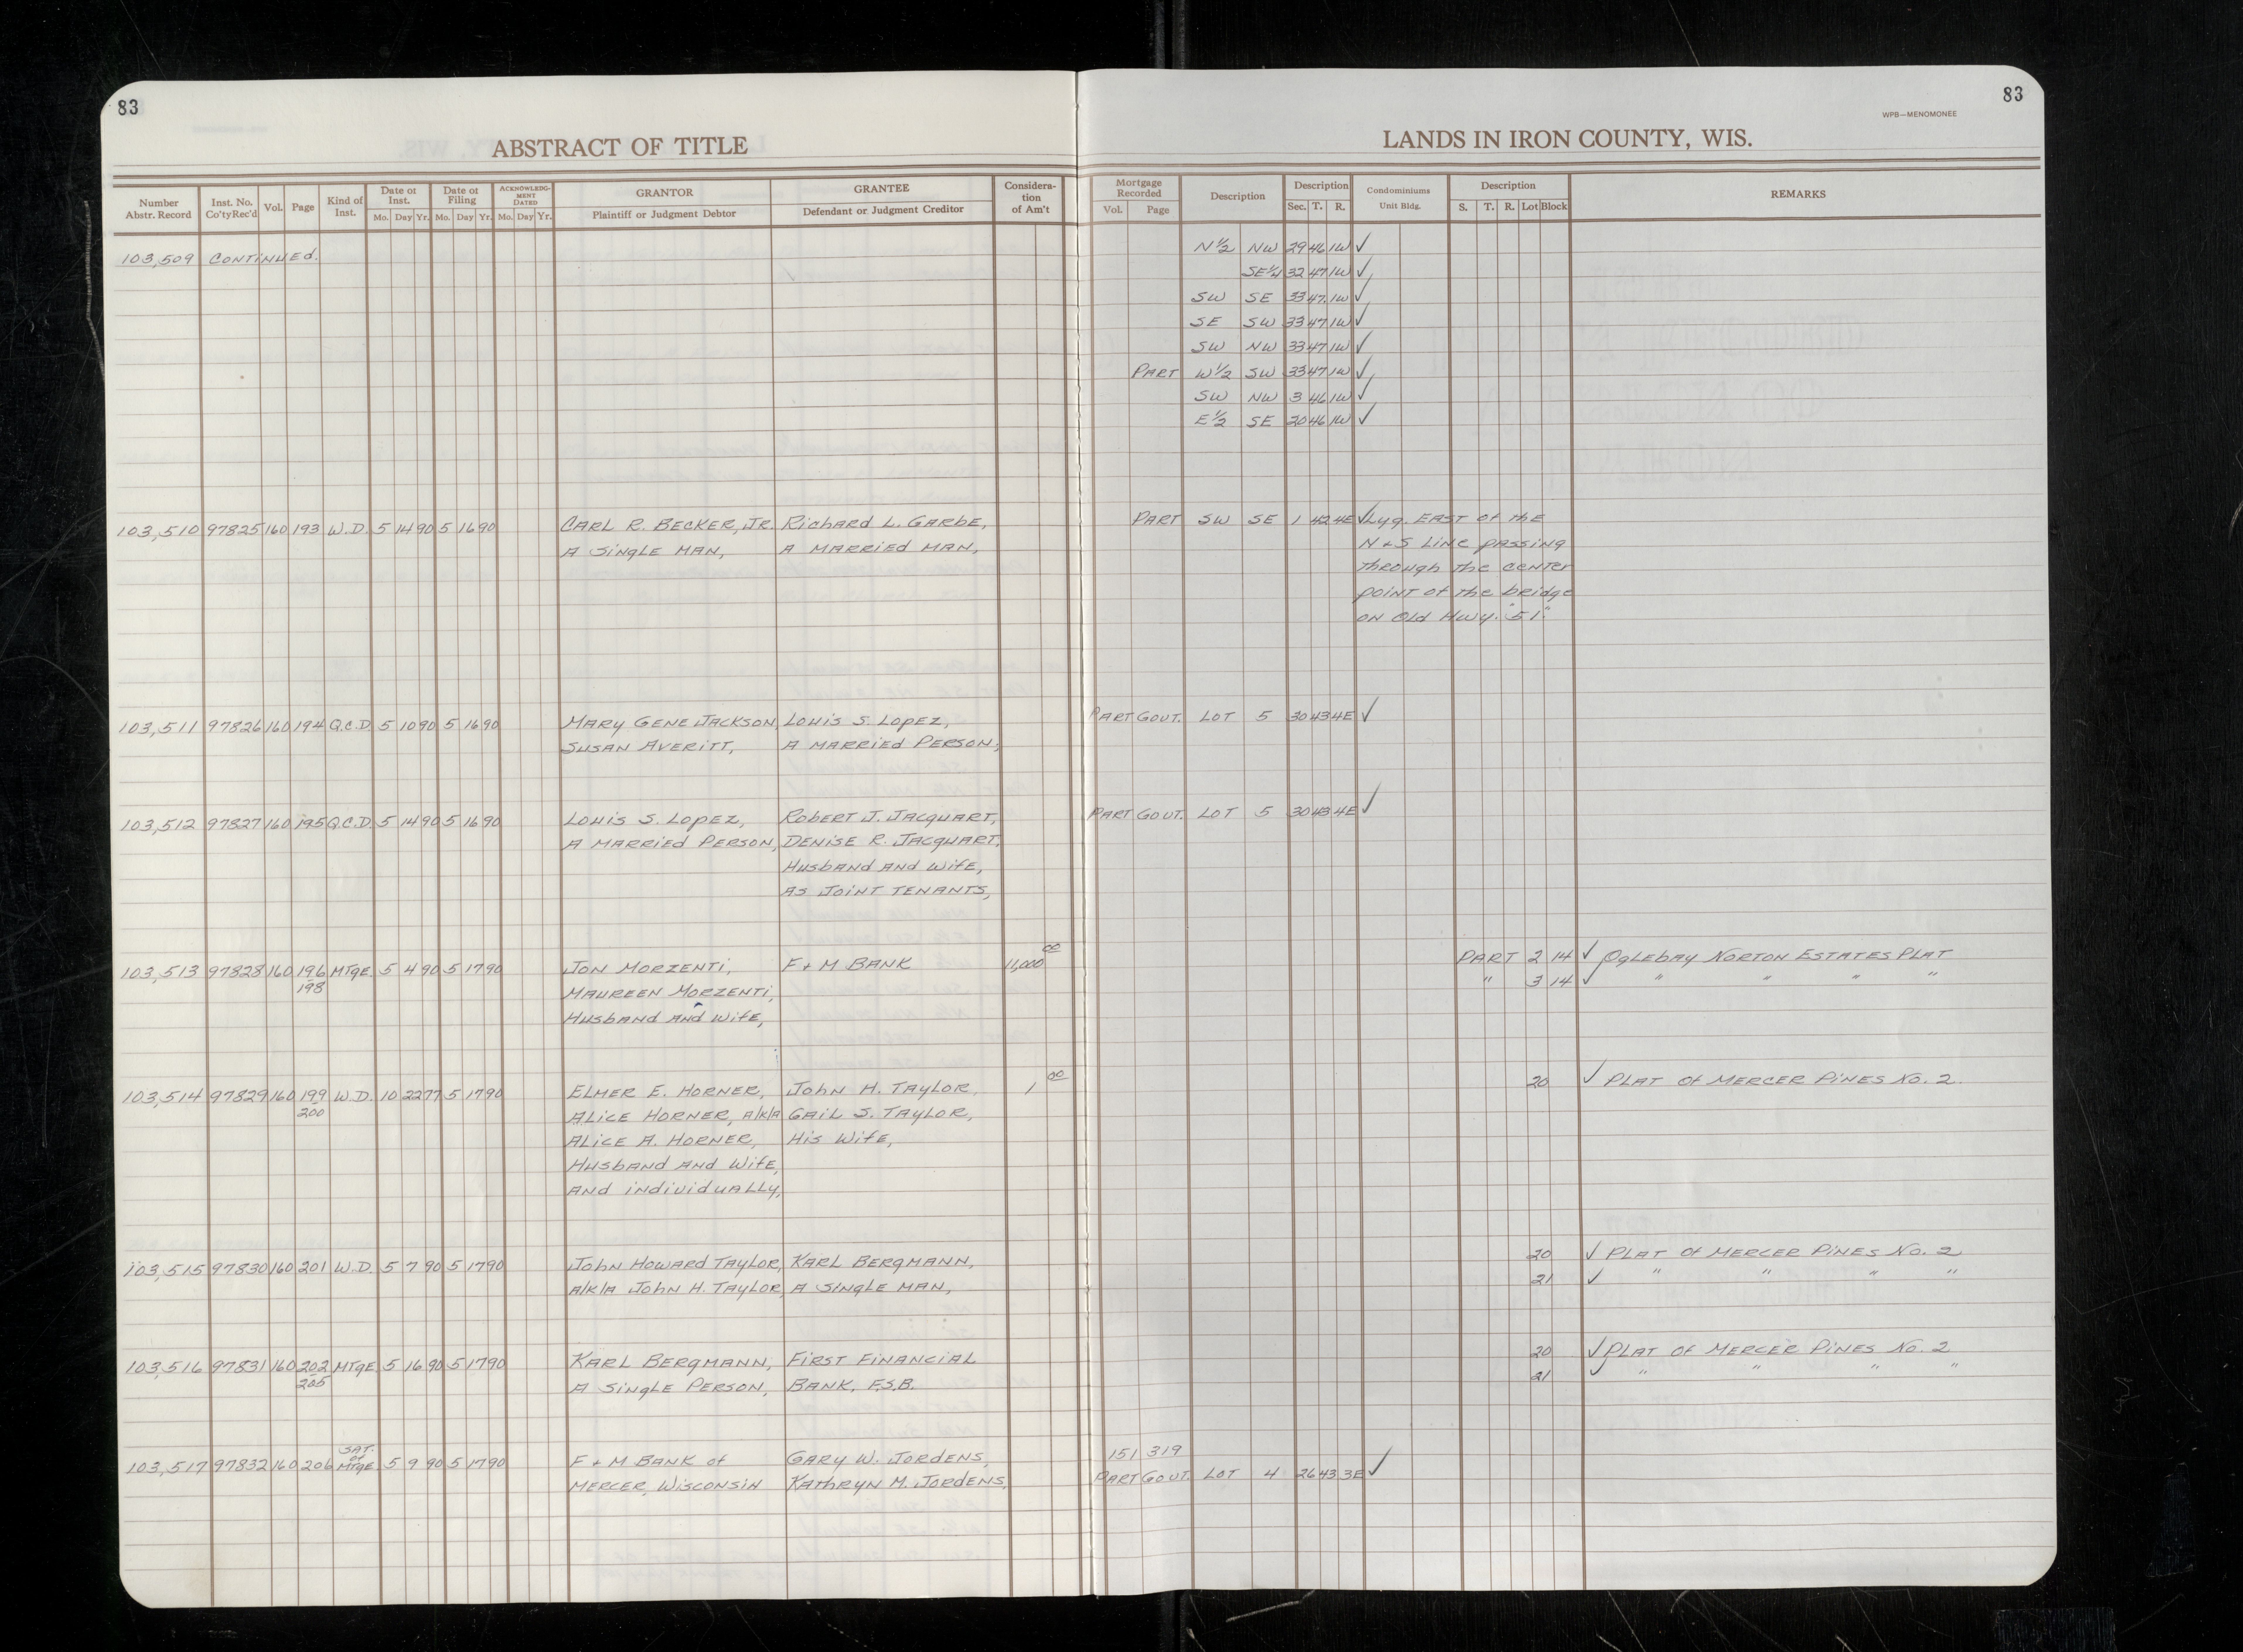 83
83
WPB—MENOMONEE
ABSTRACT OF TITLE
LANDS IN IRON COUNTY, WIS.
Number Abstr. Record | Inst. No. Co'ty Rec'd | Vol. | Page | Kind of Inst. | Date of Inst. Mo. Day Yr. | Date of Filing Mo. Day Yr. | ACKNOWLEDGMENT DATED Mo. Day Yr. | GRANTOR Plaintiff or Judgment Debtor | GRANTEE Defendant or Judgment Creditor | Consideration of Am't | Mortgage Recorded Vol. Page | Description | Description Sec. T. R. | Condominiums Unit Bldg. | Description S. T. R. Lot Block | REMARKS
103,509 CONTINUED. N½ NW 29 46 1W ✓
SE¼ 32 47 1W ✓
SW SE 33 47 1W ✓
SE SW 33 47 1W ✓
SW NW 33 47 1W ✓
PART W½ SW 33 47 1W ✓
SW NW 3 46 1W ✓
E½ SE 20 46 1W ✓
103,510 97825 160 193 W.D. 5 14 90 5 16 90 CARL R. BECKER, JR. Richard L. Garbe, PART SW SE 1 42 4E ✓ Lyg. EAST of the
A Single MAN, A MARRIED MAN, N & S Line passing
through the center
point of the bridge
on Old Hwy. "51".
103,511 97826 160 194 Q.C.D. 5 10 90 5 16 90 MARY GENE JACKSON, Louis S. Lopez, PART GOVT. LOT 5 30 43 4E ✓
SUSAN AVERITT, A MARRIED PERSON,
103,512 97827 160 195 Q.C.D. 5 14 90 5 16 90 Louis S. Lopez, Robert J. Jacquart, PART GOVT. LOT 5 30 43 4E ✓
A MARRIED PERSON, DENISE R. JACQUART,
Husband and Wife,
AS JOINT TENANTS,
103,513 97828 160 196 MTGE. 5 4 90 5 17 90 JON MORZENTI, F & M BANK 11,000 00 PART 2 14 ✓ OGLEBAY NORTON ESTATES PLAT
198 MAUREEN MORZENTI, " 3 14 ✓ " " " "
Husband and Wife,
103,514 97829 160 199 W.D. 10 22 77 5 17 90 ELMER E. HORNER, John H. TAYLOR, 1 00 20 ✓ PLAT Of MERCER PINES No. 2
200 ALICE HORNER, A/K/A GAIL S. TAYLOR,
ALICE A. HORNER, His Wife,
Husband and Wife,
And individually,
103,515 97830 160 201 W.D. 5 7 90 5 17 90 John Howard Taylor, KARL BERGMANN, 20 ✓ PLAT Of MERCER PINES No. 2
A/K/A John H. Taylor, A SINGLE MAN, 21 ✓ " " " "
103,516 97831 160 202 MTGE 5 16 90 5 17 90 KARL BERGMANN, FIRST FINANCIAL 20 ✓ PLAT Of MERCER PINES No. 2
205 A Single Person, BANK, F.S.B. 21 ✓ " " " "
SAT. of
103,517 97832 160 206 MTGE 5 9 90 5 17 90 F & M BANK of GARY W. JORDENS, 151 319
MERCER, Wisconsin Kathryn M. JORDENS, PART GOVT. LOT 4 26 43 3E ✓